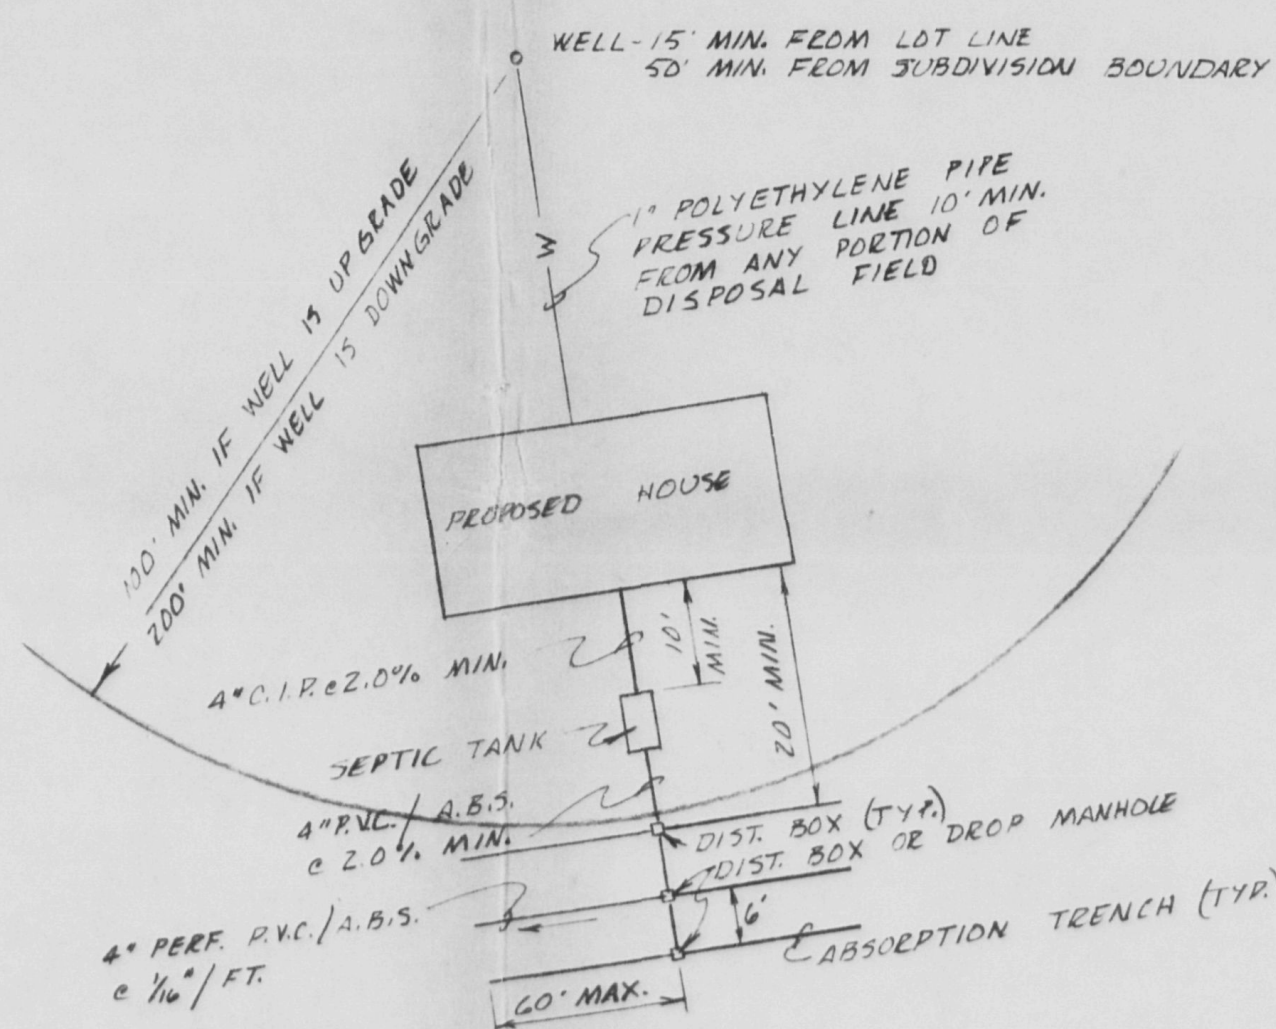 WELL-15' MIN. FROM LOT LINE
50' MIN. FROM SUBDIVISION BOUNDARY
100' MIN. IF WELL IS UPGRADE
200' MIN. IF WELL IS DOWNGRADE
W
1" POLYETHYLENE PIPE
PRESSURE LINE 10' MIN.
FROM ANY PORTION OF
DISPOSAL FIELD
PROPOSED HOUSE
10'
MIN.
20' MIN.
4" C.I.P. @ 2.0% MIN.
SEPTIC TANK
4" P.V.C. / A.B.S.
@ 2.0% MIN.
DIST. BOX (TYP.)
DIST. BOX OR DROP MANHOLE
4" PERF. P.V.C. / A.B.S.
@ 1/16" / FT.
6'
℄ ABSORPTION TRENCH (TYP.)
60' MAX.